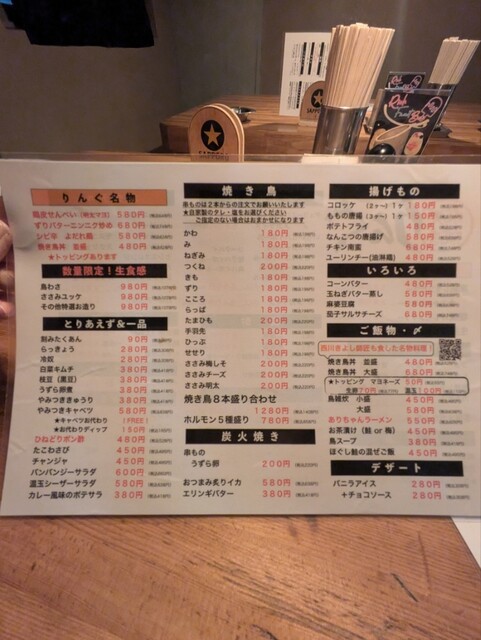 りんご名物
鶏皮せんべい(明太マヨ) 580円
ずりバターニンニク炒め 680円
シビ辛 よだれ鶏 580円
焼き鳥丼 並盛 480円
★トッピングあります
数量限定!生食感
鳥わさ 980円
ささみユッケ 980円
その他特選お造り 980円
とりあえず&一品
刻みたくあん 90円
らっきょう 280円
冷奴 280円
白菜キムチ 380円
枝豆(黒豆) 380円
うずら卵煮 380円
やみつききゅうり 380円
やみつきキャベツ 580円
★キャベツお代わり FREE!
★お代わりディップ 150円
ひねどりポン酢 480円
たこわさび 450円
チャンジャ 450円
バンバンジーサラダ 600円
温玉シーザーサラダ 580円
カレー風味のポテサラ 380円
焼き鳥
串ものは2本からの注文でお願いいたします
★自家製のタレ・塩をお選びください
ご指定のない場合はおまかせになります
かわ 180円
み 180円
ねぎみ 180円
つくね 200円
きも 180円
ずり 180円
こころ 180円
らっぱ 180円
たまひも 200円
手羽先 180円
ひっぷ 180円
せせり 180円
ささみ梅しそ 200円
ささみチーズ 200円
ささみ明太 200円
焼き鳥8本盛り合わせ
1280円
ホルモン5種盛り 780円
炭火焼き
串もの
うずら卵 200円
おつまみ炙りイカ 580円
エリンギバター 380円
揚げもの
コロッケ (2ヶ〜)1ヶ 180円
もも唐揚 (2ヶ〜)1ヶ 150円
ポテトフライ 480円
なんこつの唐揚げ 580円
チキン南蛮 680円
ユーリンチー(油淋鶏) 680円
いろいろ
コーンバター 480円
玉ねぎバター蒸し 580円
麻婆豆腐 580円
茄子サルサチーズ 680円
ご飯物・〆
西川きよし師匠も食した名物料理!
焼き鳥丼 並盛 480円
焼き鳥丼 大盛 680円
★トッピング マヨネーズ 50円
生卵 70円 温玉 100円
鳥雑炊 小盛 450円
大盛 580円
ありちゃんラーメン 550円
お茶漬け(鮭 or 梅) 450円
鳥スープ 380円
ほぐし鮭の混ぜご飯 450円
デザート
バニラアイス 280円
+チョコソース 280円